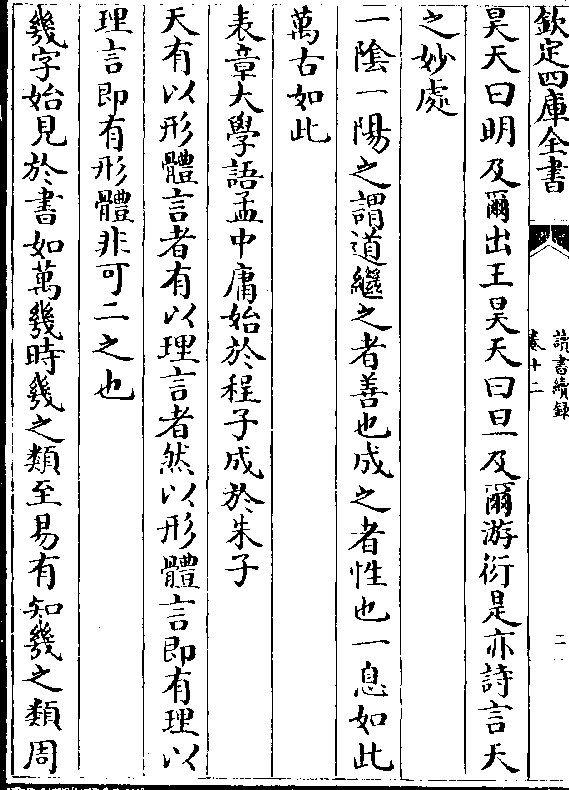 欽定四庫全書
讀書續録
卷十二
二
昊天曰明及爾出王昊天曰旦及爾游衍是亦詩言天
之妙處
一陰一陽之謂道繼之者善也成之者性也一息如此
萬古如此
表章大學語孟中庸始於程子成於朱子
天有以形體言者有以理言者然以形體言即有理以
理言即有形體非可二之也
幾字始見於書如萬幾時幾之類至易有知幾之類周